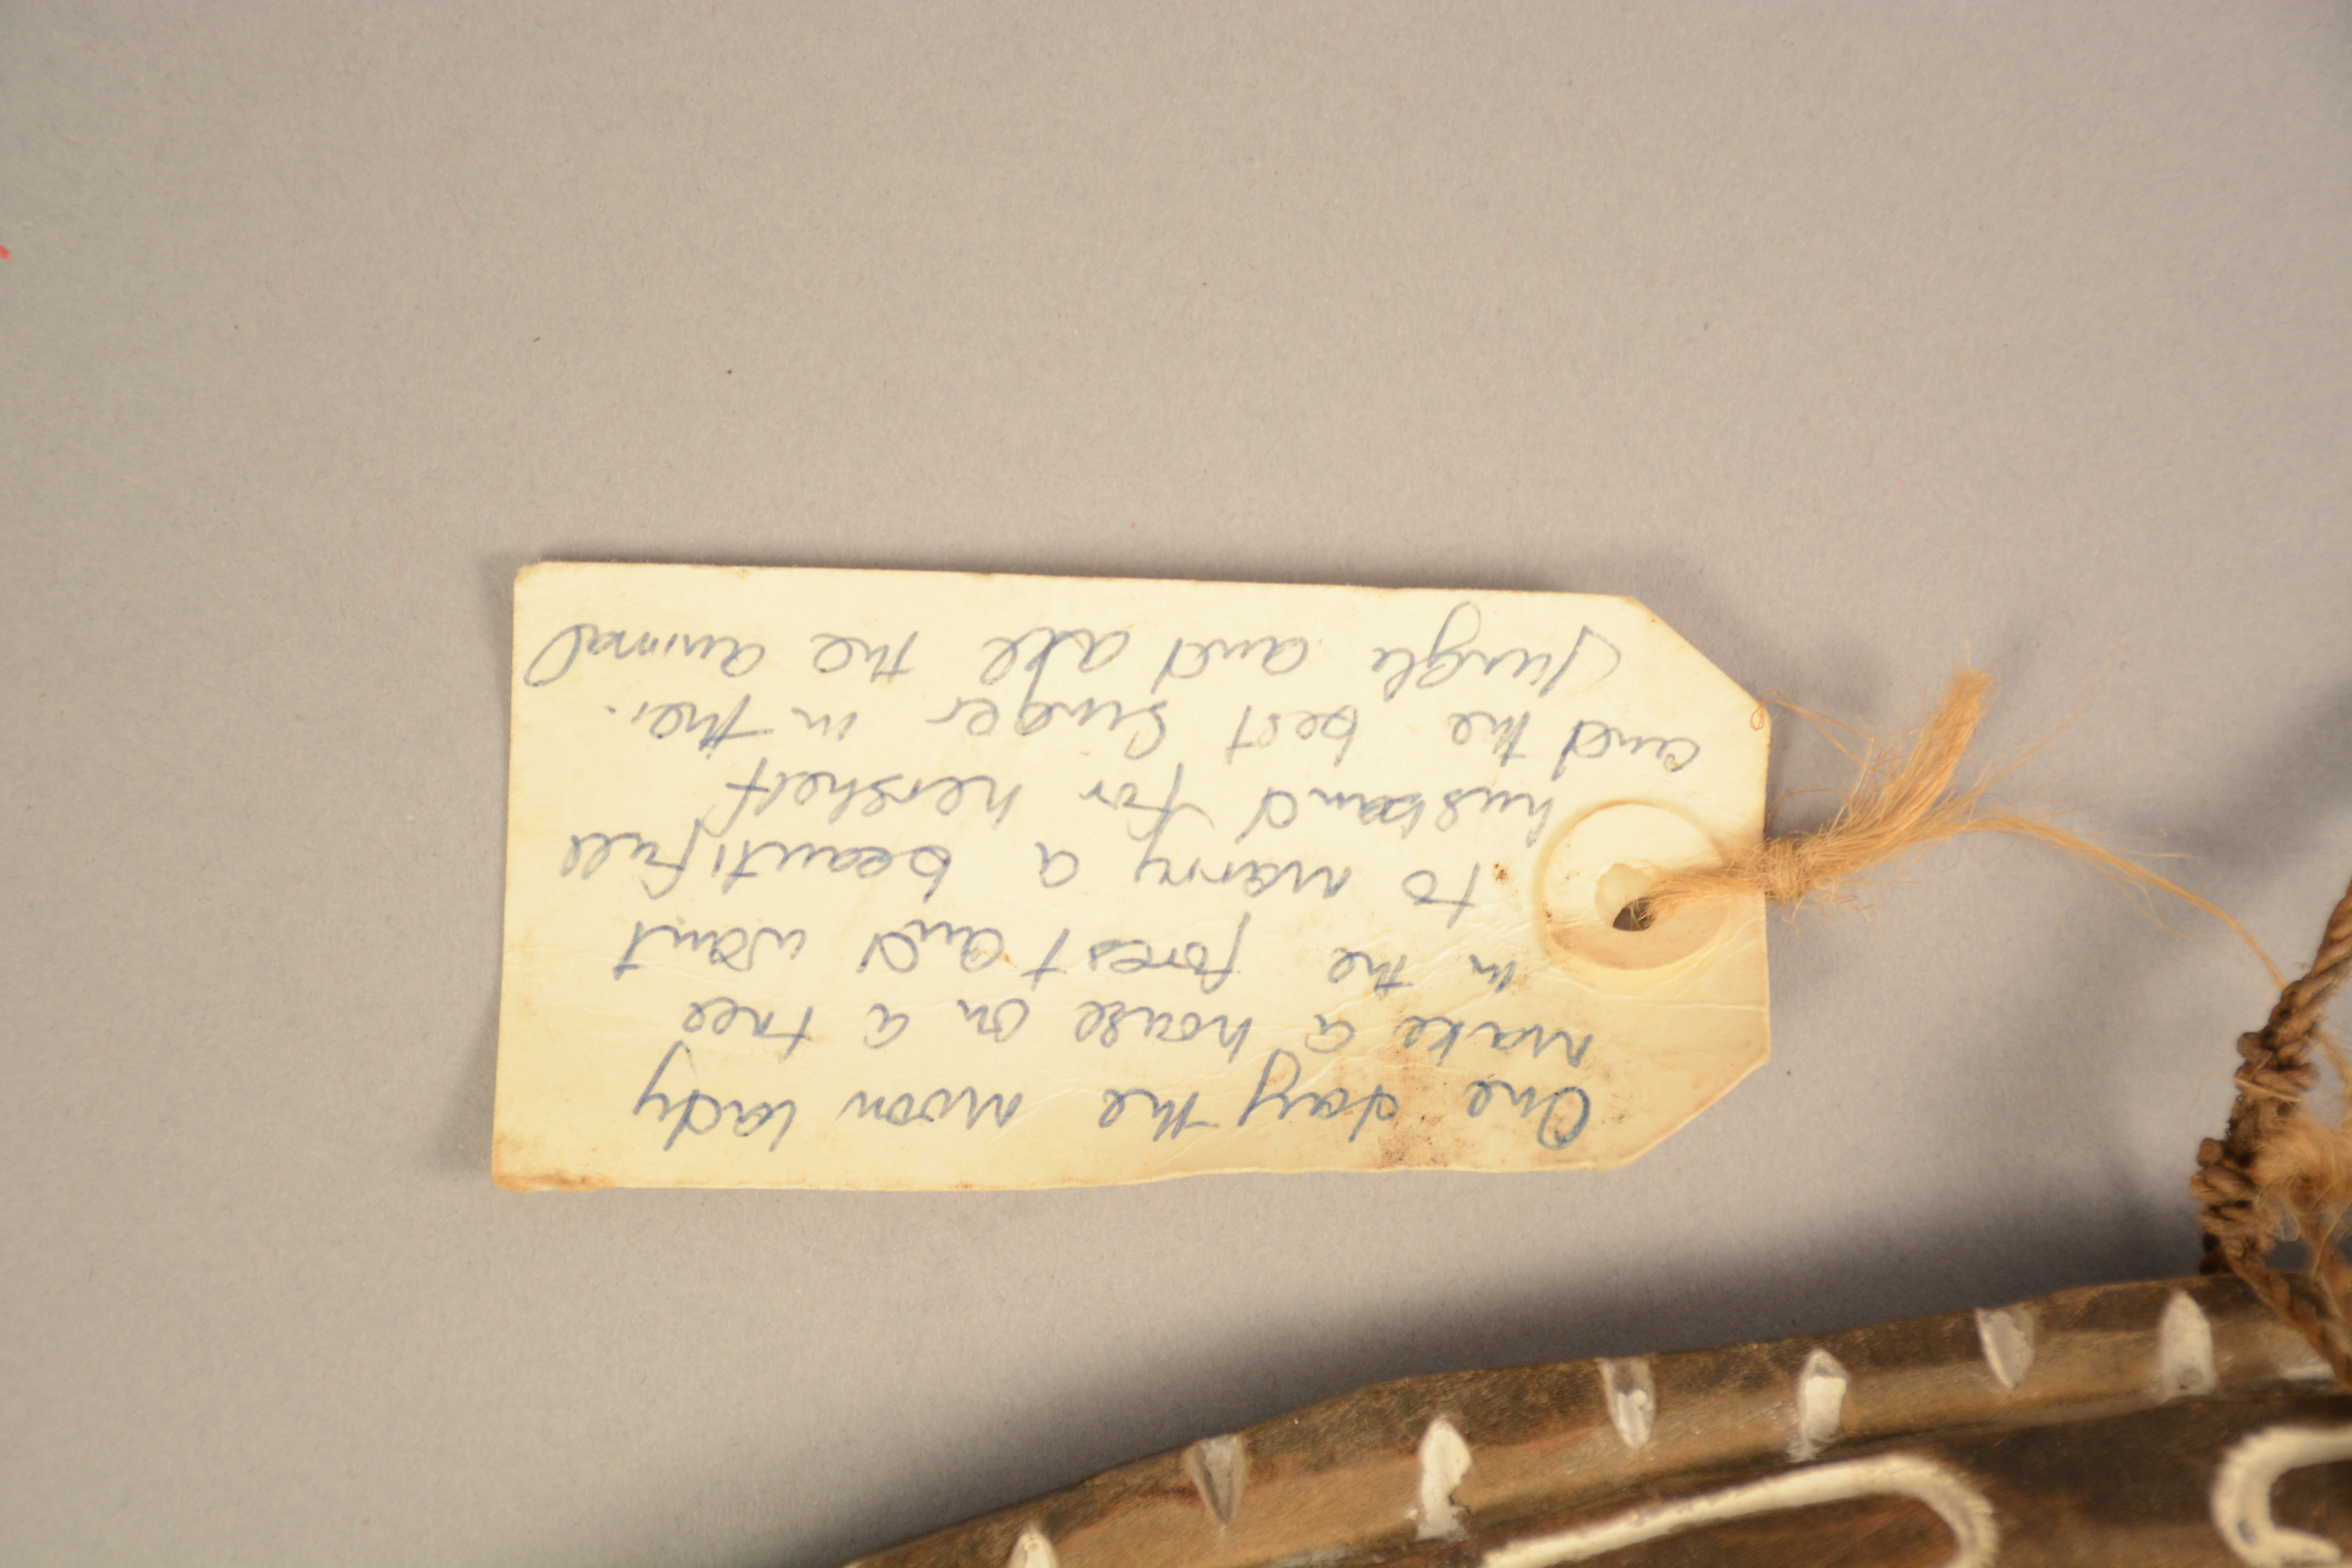 One day the moon lady
make a house on a tree
in the forest and want
to marry a beautifull
husband for hershelf
and the best singer in the.
Jungle and all the animal